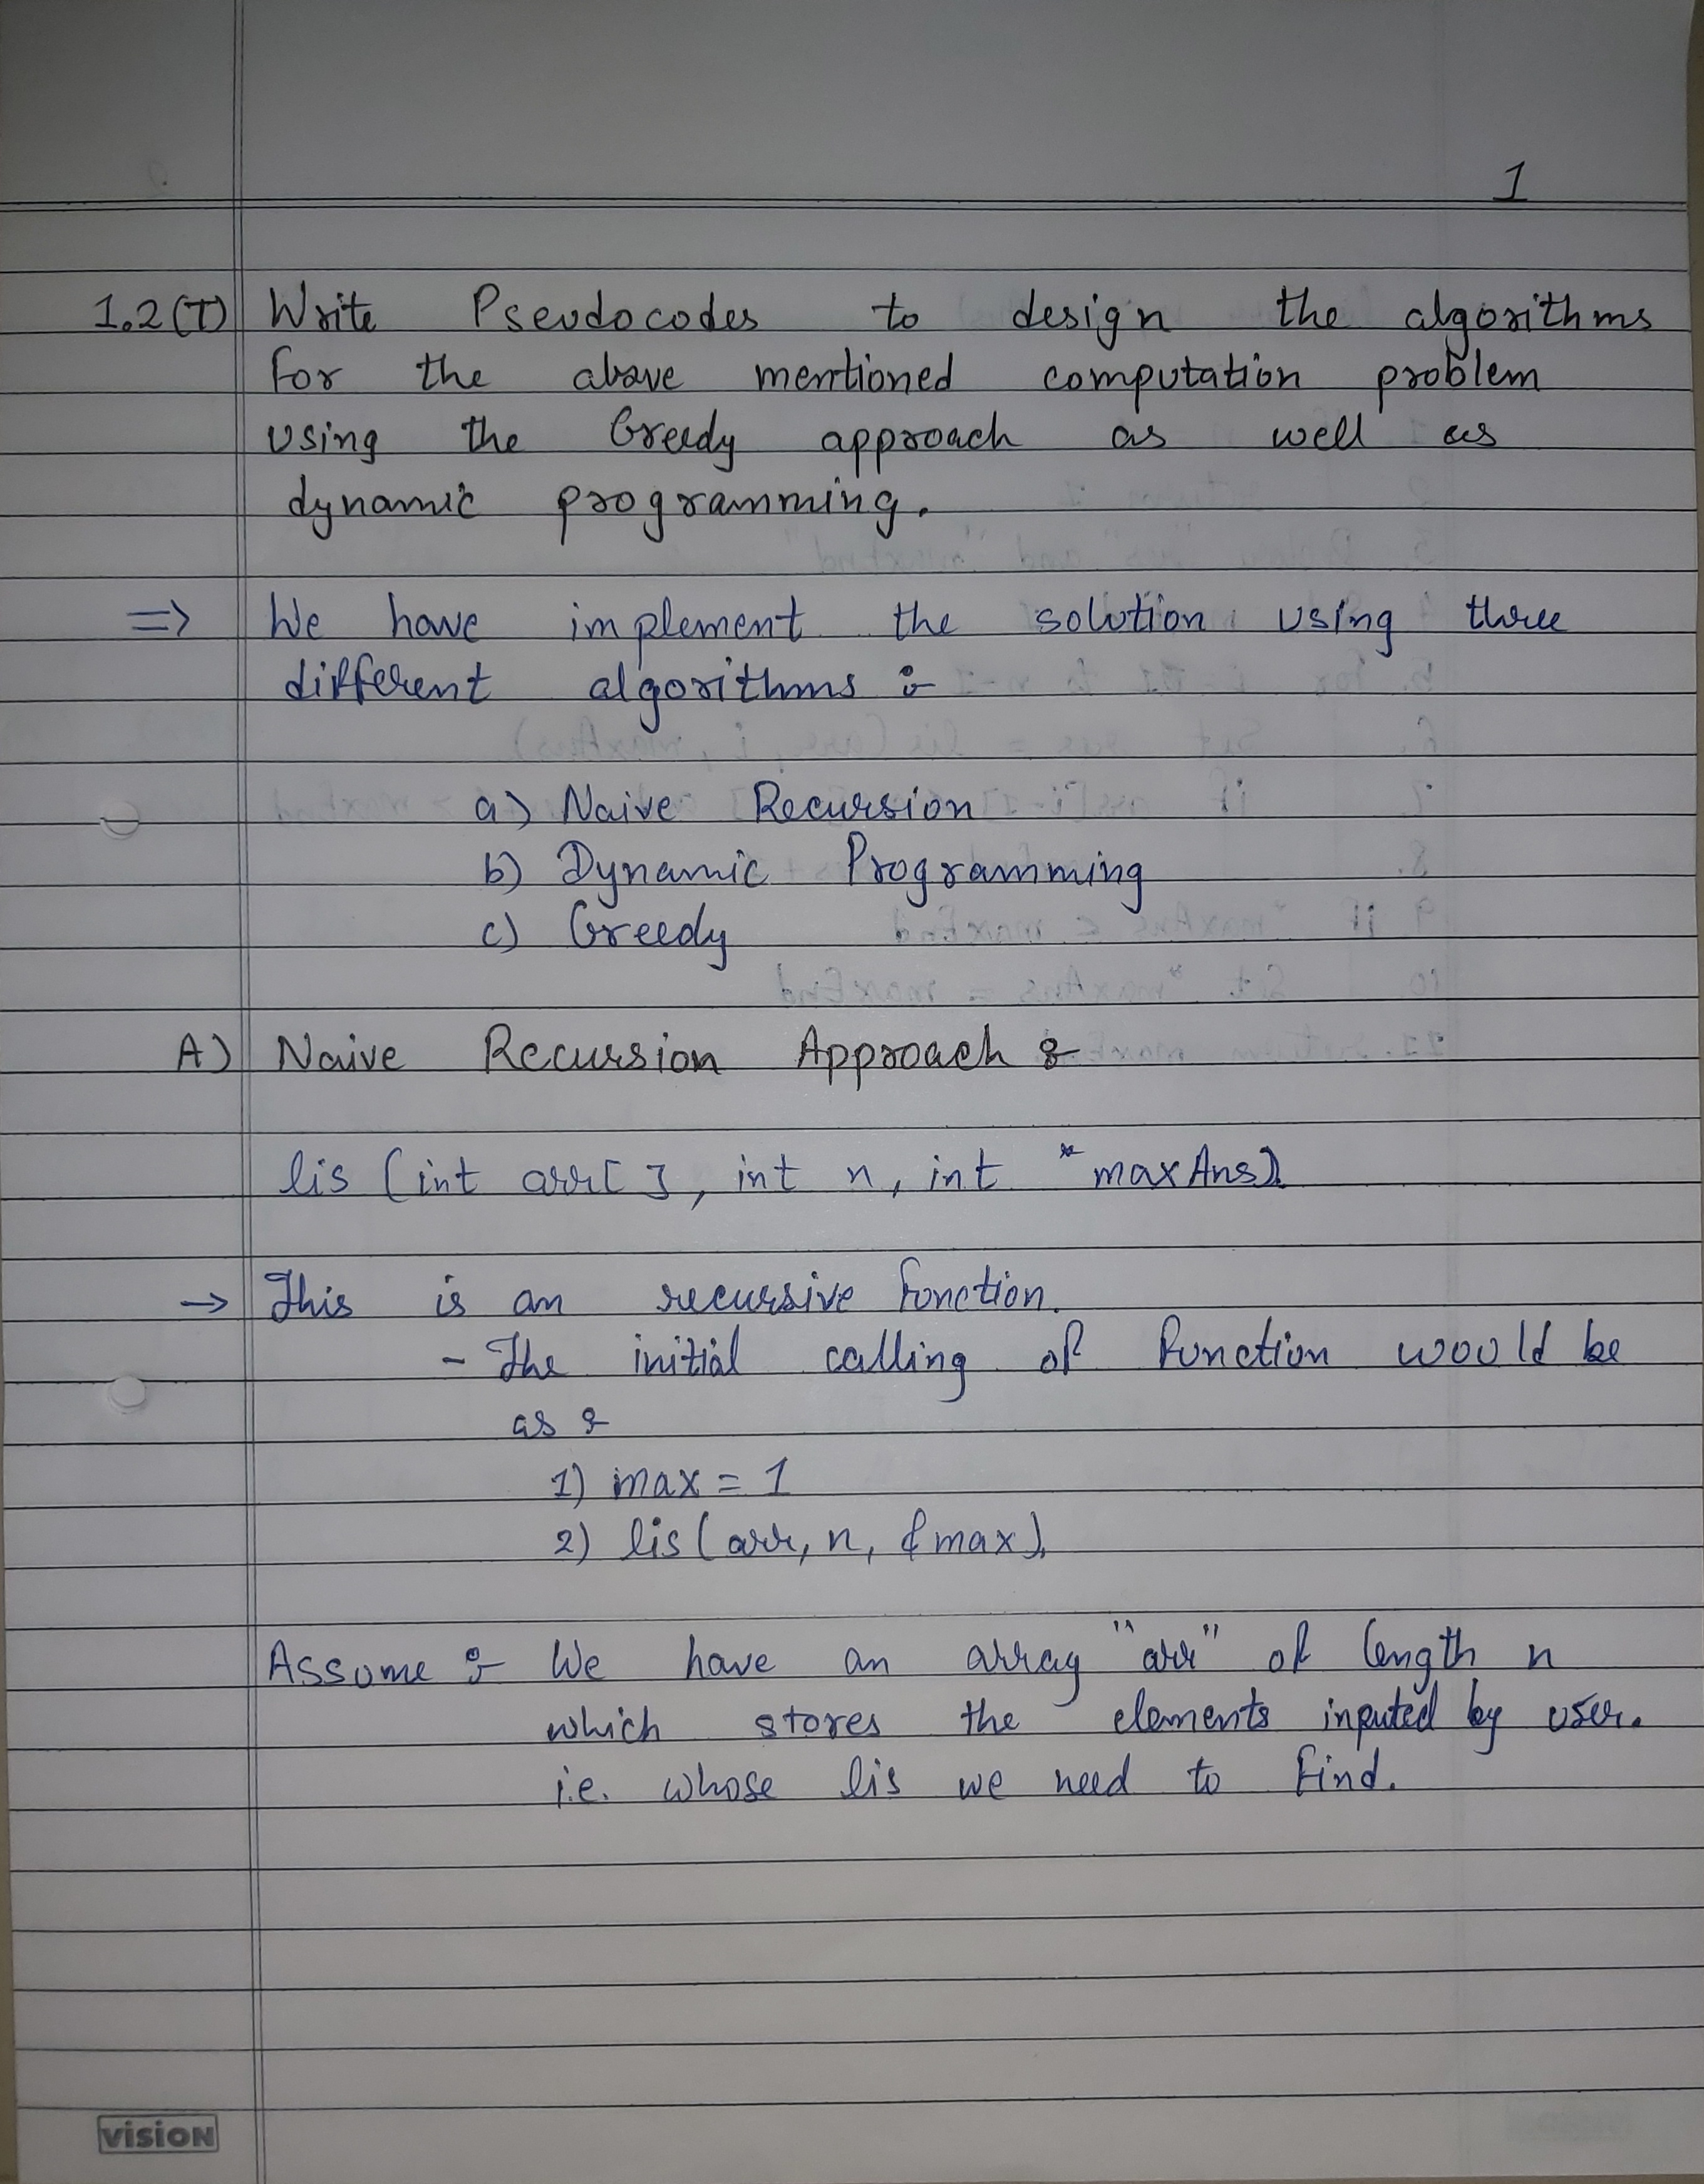 1
1.2(T) Write Pseudocodes to design the algorithms
for the above mentioned computation problem
using the Greedy approach as well as
dynamic programming.
=> We have implement the solution using three
different algorithms :-
a) Naive Recursion
b) Dynamic Programming
c) Greedy
A) Naive Recursion Approach :-
lis (int arr[ ], int n, int *maxAns)
→ This is an recursive function.
- The initial calling of function would be
as :-
1) max = 1
2) lis(arr, n, &max),
Assume :- We have an array "arr" of length n
which stores the elements inputed by user.
i.e. whose lis we need to find.
vision